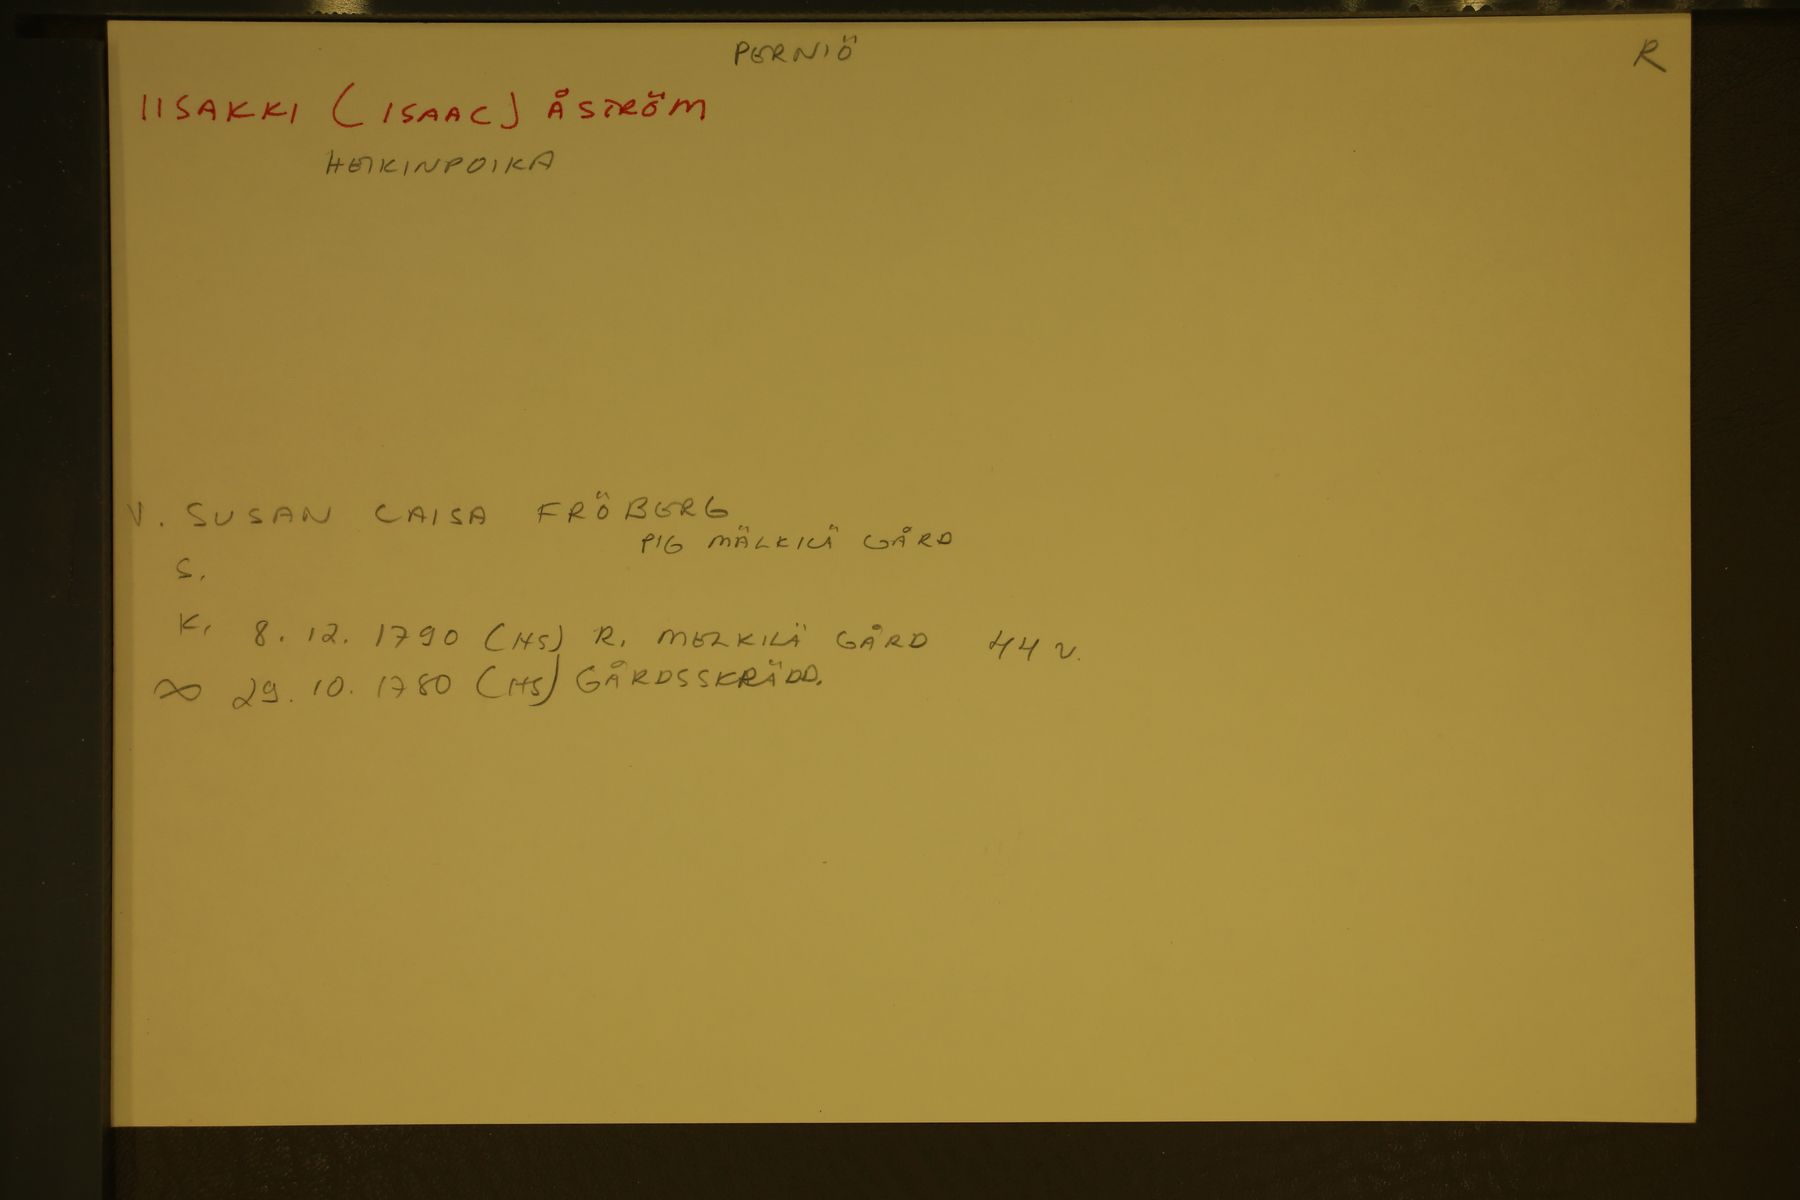 PERNIÖ R
IISAKKI (ISAAC) ÅSTRÖM
HEIKINPOIKA
V. SUSAN CAISA FRÖBERG
PIG MÄLKILÄ GÅRD
S.
K. 8. 12. 1790 (HS) R. MELKILÄ GÅRD 44 v.
∞ 29. 10. 1780 (HS) GÅRDSSKRÄDD.